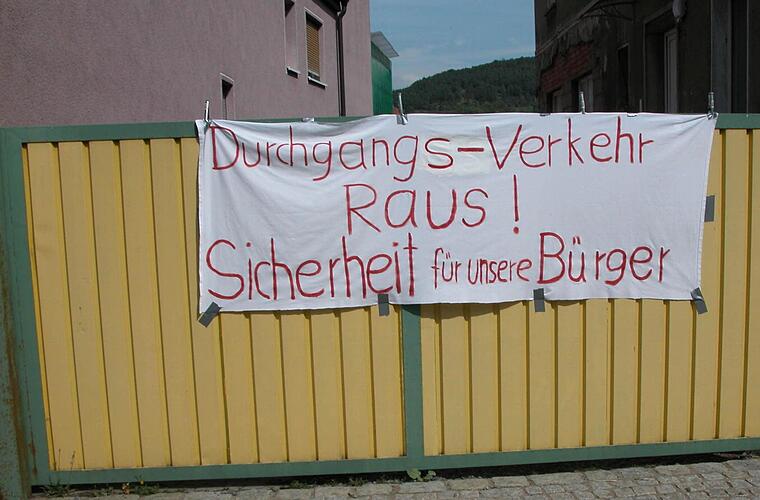 Durchgangs-Verkehr
Raus!
Sicherheit für unsere Bürger